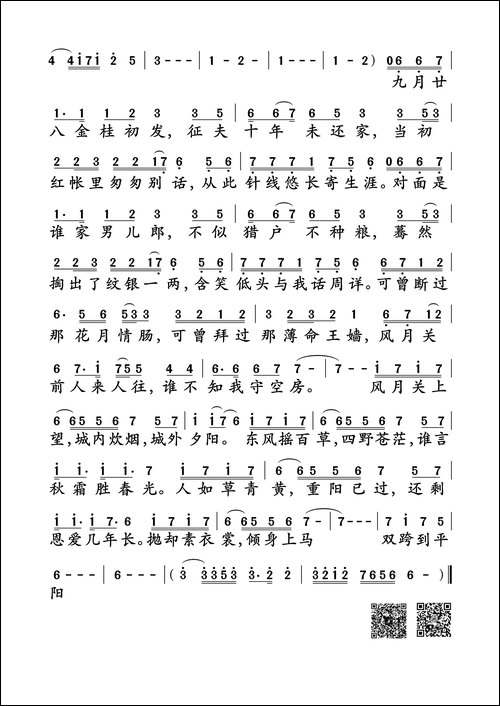 4 4i7i 2 5 | 3 - - - | 1 - 2 - | 1 - - - | 1 - 2 ) 06 6 7 |
九月廿
1· 1 1 2 3 3 5 | 6 67 6 3 53 |
八金桂初发，征夫十年未还家，当初
2 2 3 2 2 17 6 5 6 | 7 7 7 1 7 5 6 06 6 7 |
红帐里匆匆别话，从此针线悠长寄生涯。对面是
1· 1 1 2 3 3 5 | 6 67 6 3 53 |
谁家男儿郎，不似猎户不种粮，蓦然
2 2 3 2 2 17 6 5 6 | 7 7 7 1 7 5 6 06 6 7 |
掏出了纹银一两，含笑低头与我话周详。可曾断过
6· 5 6 533 3 2 | 3 2 3 2 6 7 12 |
那花月情肠，可曾拜过那薄命王嫱，风月关
6 7· i 755 4 4 | 6· 6 6 6 7 - | 7 - - i 7 i 7 |
前人来人往，谁不知我守空房。风月关上
6 6 5 5 6 7 5 6 7 | i i7 6 - i 7 i 7 | 6 6 5 5 6 7 5 6 7 |
望，城内炊烟，城外夕阳。东风摇百草，四野苍茫，谁言
i i i· i 7 | i 7 i 7 | 6 6 5 5 6 7 5 6 7 |
秋霜胜春光。人如草青黄，重阳已过，还剩
i i i 7· i 7 i 7 | 6 6 5 5 6 7 - | 7 - - - | 7 - i 7 i 7 |
恩爱几年长。抛却素衣裳，倾身上马双跨到平
6 - - - | 6 - - - | ( 3 3353 3· 2 2 | 3212 7656 6 - ) ‖
阳